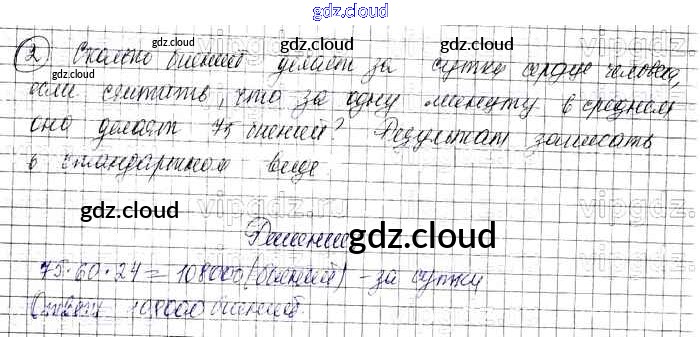 gdz.cloud
② Сколько биений делает за сутки сердце человека,
если считать, что за одну минуту в среднем
оно делает 75 биений? Результат записать
в стандартном виде
gdz.cloud
gdz.cloud
gdz.cloud
gdz.cloud
gdz.cloud
vipgdz.ru
vipgdz
Решение
gdz.cloud
75·60·24=108000(биений) - за сутки
Ответ: 108000 биений.
gdz.cloud